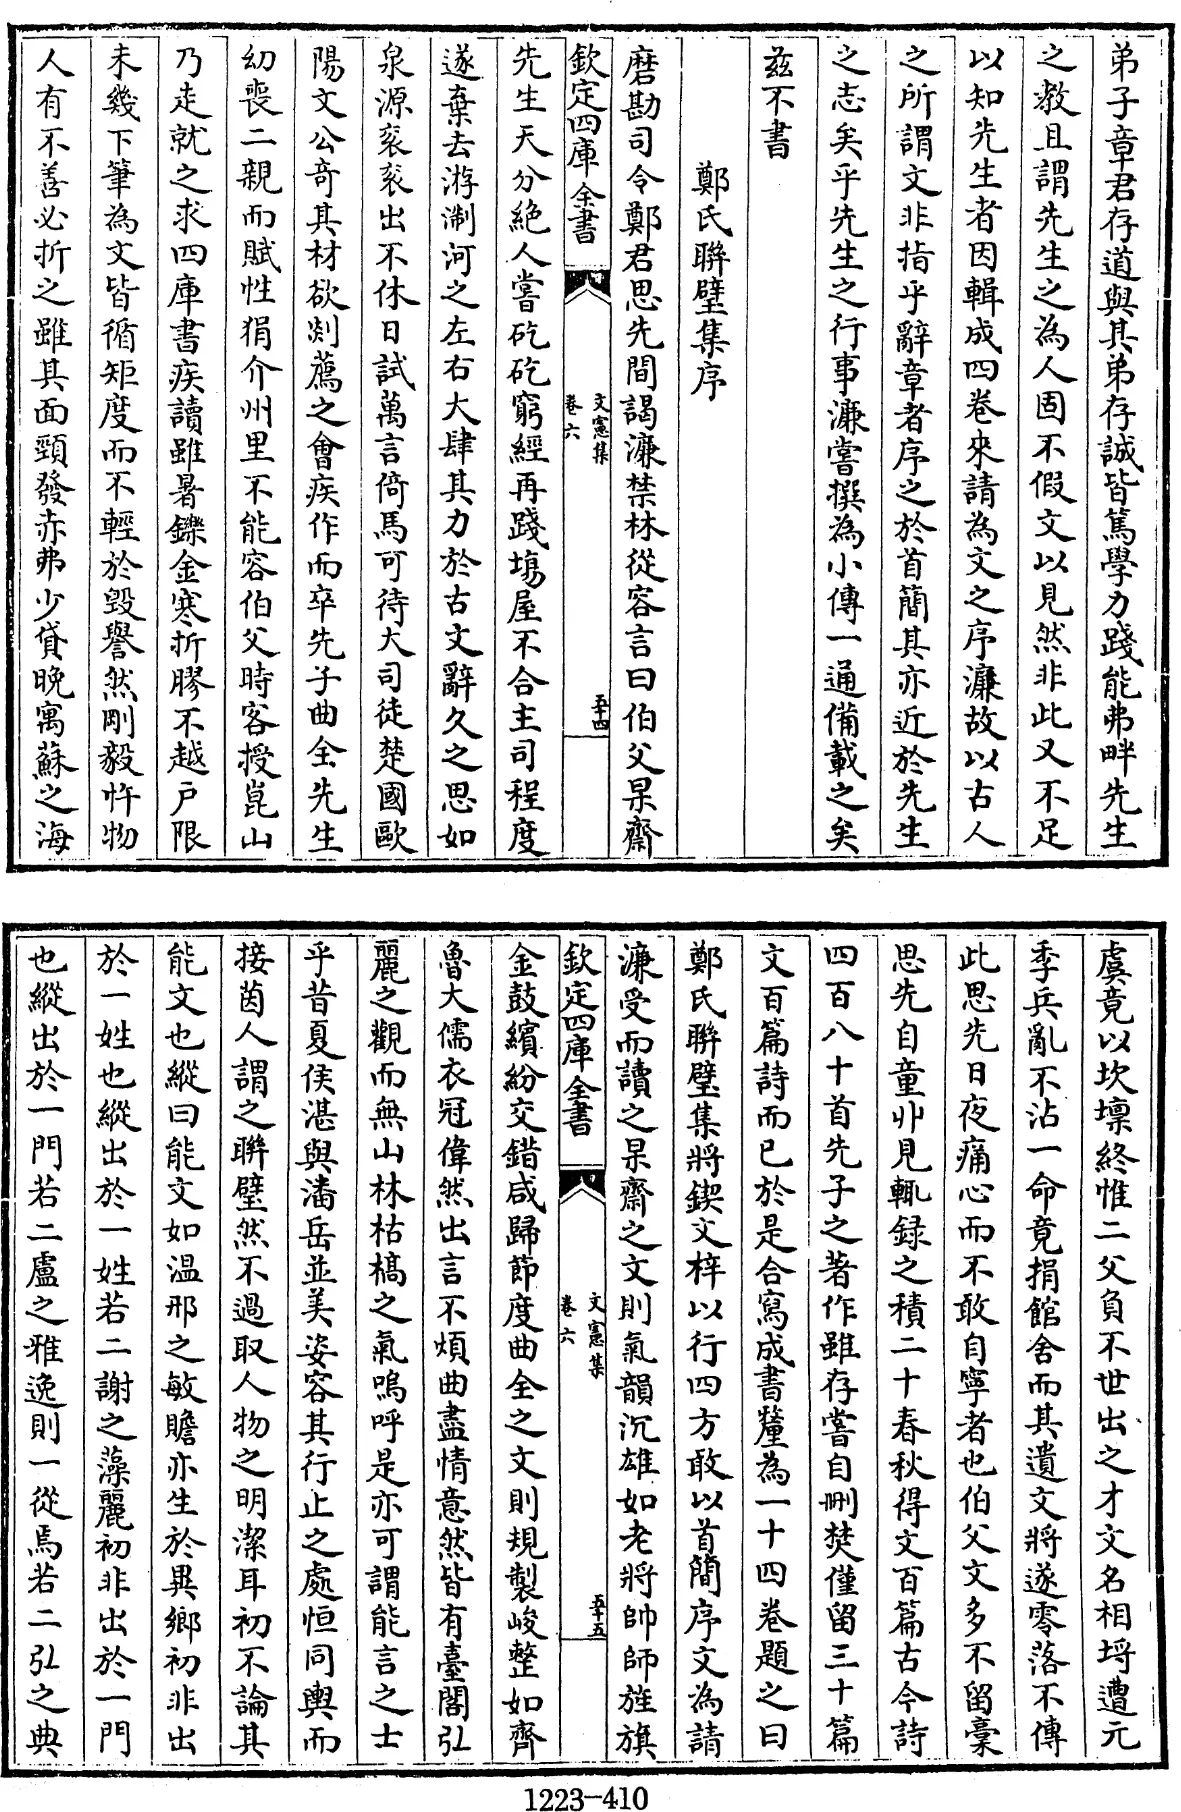 弟子章君存道與其弟存誠皆篤學力踐能弗畔先生
之教且謂先生之為人固不假文以見然非此又不足
以知先生者因輯成四卷來請為文之序濂故以古人
之所謂文非指乎辭章者序之於首簡其亦近於先生
之志矣乎先生之行事濂嘗撰為小傳一通備載之矣
茲不書
鄭氏聨璧集序
磨勘司令鄭君思先間謁濂禁林從容言曰伯父杲齋
欽定四庫全書
文憲集
卷六
五十四
先生天分絶人嘗矻矻窮經再踐場屋不合主司程度
遂棄去游淛河之左右大肆其力於古文辭久之思如
泉源衮衮出不休日試萬言倚馬可待大司徒楚國歐
陽文公奇其材欲剡薦之會疾作而卒先子曲全先生
幼喪二親而賦性狷介州里不能容伯父時客授崑山
乃走就之求四庫書疾讀雖暑鑠金寒折膠不越戶限
未幾下筆為文皆循矩度而不輕於毀譽然剛毅忤物
人有不善必折之雖其面頸發赤弗少貸晚寓蘇之海
虞竟以坎壈終惟二父負不世出之才文名相埒遭元
季兵亂不沾一命竟捐館舍而其遺文將遂零落不傳
此思先日夜痛心而不敢自寧者也伯父文多不留稾
思先自童丱見輒録之積二十春秋得文百篇古今詩
四百八十首先子之著作雖存嘗自刪焚僅留三十篇
文百篇詩而已於是合寫成書釐為一十四卷題之曰
鄭氏聨璧集將鍥文梓以行四方敢以首簡序文為請
濂受而讀之杲齋之文則氣韻沉雄如老將帥師旌旗
欽定四庫全書
文憲集
卷六
五十五
金鼓繽紛交錯咸歸節度曲全之文則規製峻整如齊
魯大儒衣冠偉然出言不煩曲盡情意然皆有臺閣弘
麗之觀而無山林枯槁之氣嗚呼是亦可謂能言之士
乎昔夏侯湛與潘岳並美姿容其行止之處恒同輿而
接茵人謂之聨璧然不過取人物之明潔耳初不論其
能文也縱曰能文如温邢之敏贍亦生於異鄉初非出
於一姓也縱出於一姓若二謝之藻麗初非出於一門
也縱出於一門若二盧之雅逸則一從焉若二弘之典
1223-410